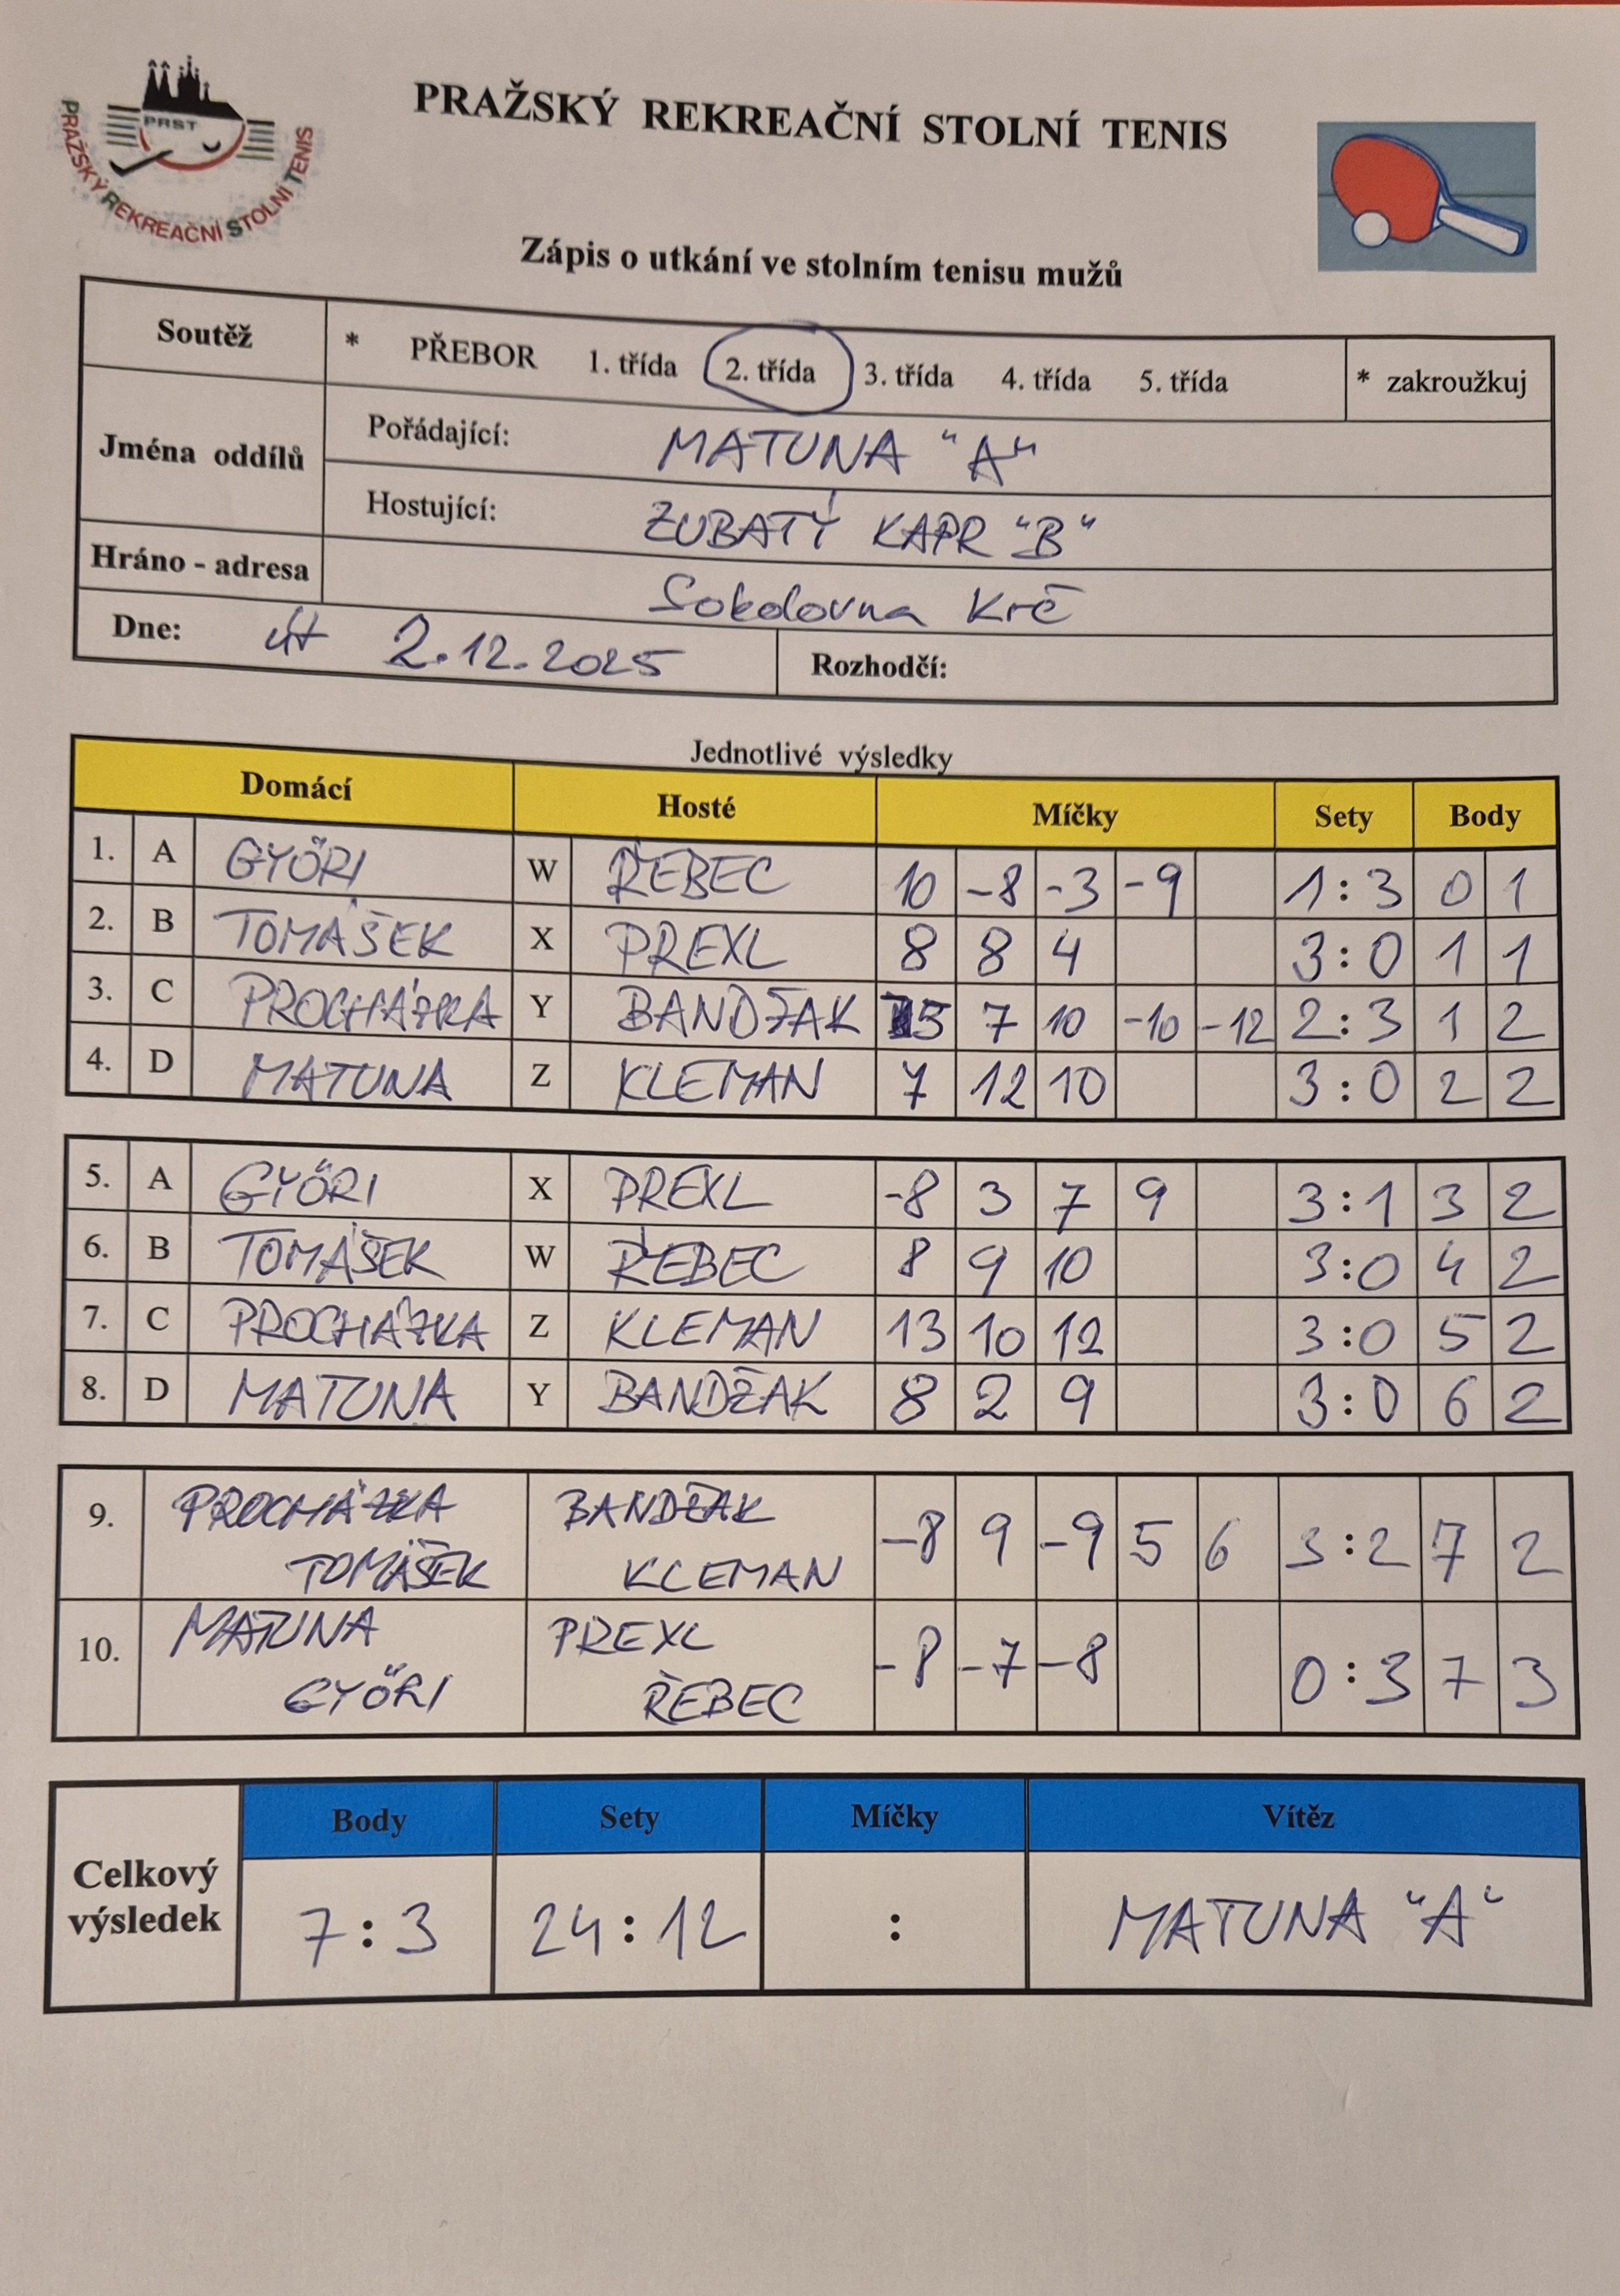 PRST
PRAŽSKÝ REKREAČNÍ STOLNÍ TENIS
PRAŽSKÝ REKREAČNÍ STOLNÍ TENIS
Zápis o utkání ve stolním tenisu mužů
Soutěž * PŘEBOR 1. třída 2. třída 3. třída 4. třída 5. třída * zakroužkuj
Jména oddílů
Pořádající: MATUNA "A"
Hostující: ZUBATÝ KAPR "B"
Hráno - adresa Sokolovna Krč
Dne: út 2.12.2025 Rozhodčí:
Jednotlivé výsledky
Domácí Hosté Míčky Sety Body
1. A GYŐRI W ŘEBEC 10 -8 -3 -9 1:3 0 1
2. B TOMÁŠEK X PREXL 8 8 4 3:0 1 1
3. C PROCHÁZKA Y BANDŽAK 7 10 -10 -12 2:3 1 2
4. D MATUNA Z KLEMAN 7 12 10 3:0 2 2
5. A GYŐRI X PREXL -8 3 7 9 3:1 3 2
6. B TOMÁŠEK W ŘEBEC 8 9 10 3:0 4 2
7. C PROCHÁZKA Z KLEMAN 13 10 12 3:0 5 2
8. D MATUNA Y BANDŽAK 8 2 9 3:0 6 2
9. PROCHÁZKA BANDŽAK -8 9 -9 5 6 3:2 7 2
TOMÁŠEK KLEMAN
10. MATUNA PREXL -8 -7 -8 0:3 7 3
GYŐRI ŘEBEC
Celkový výsledek
Body Sety Míčky Vítěz
7:3 24:12 : MATUNA "A"